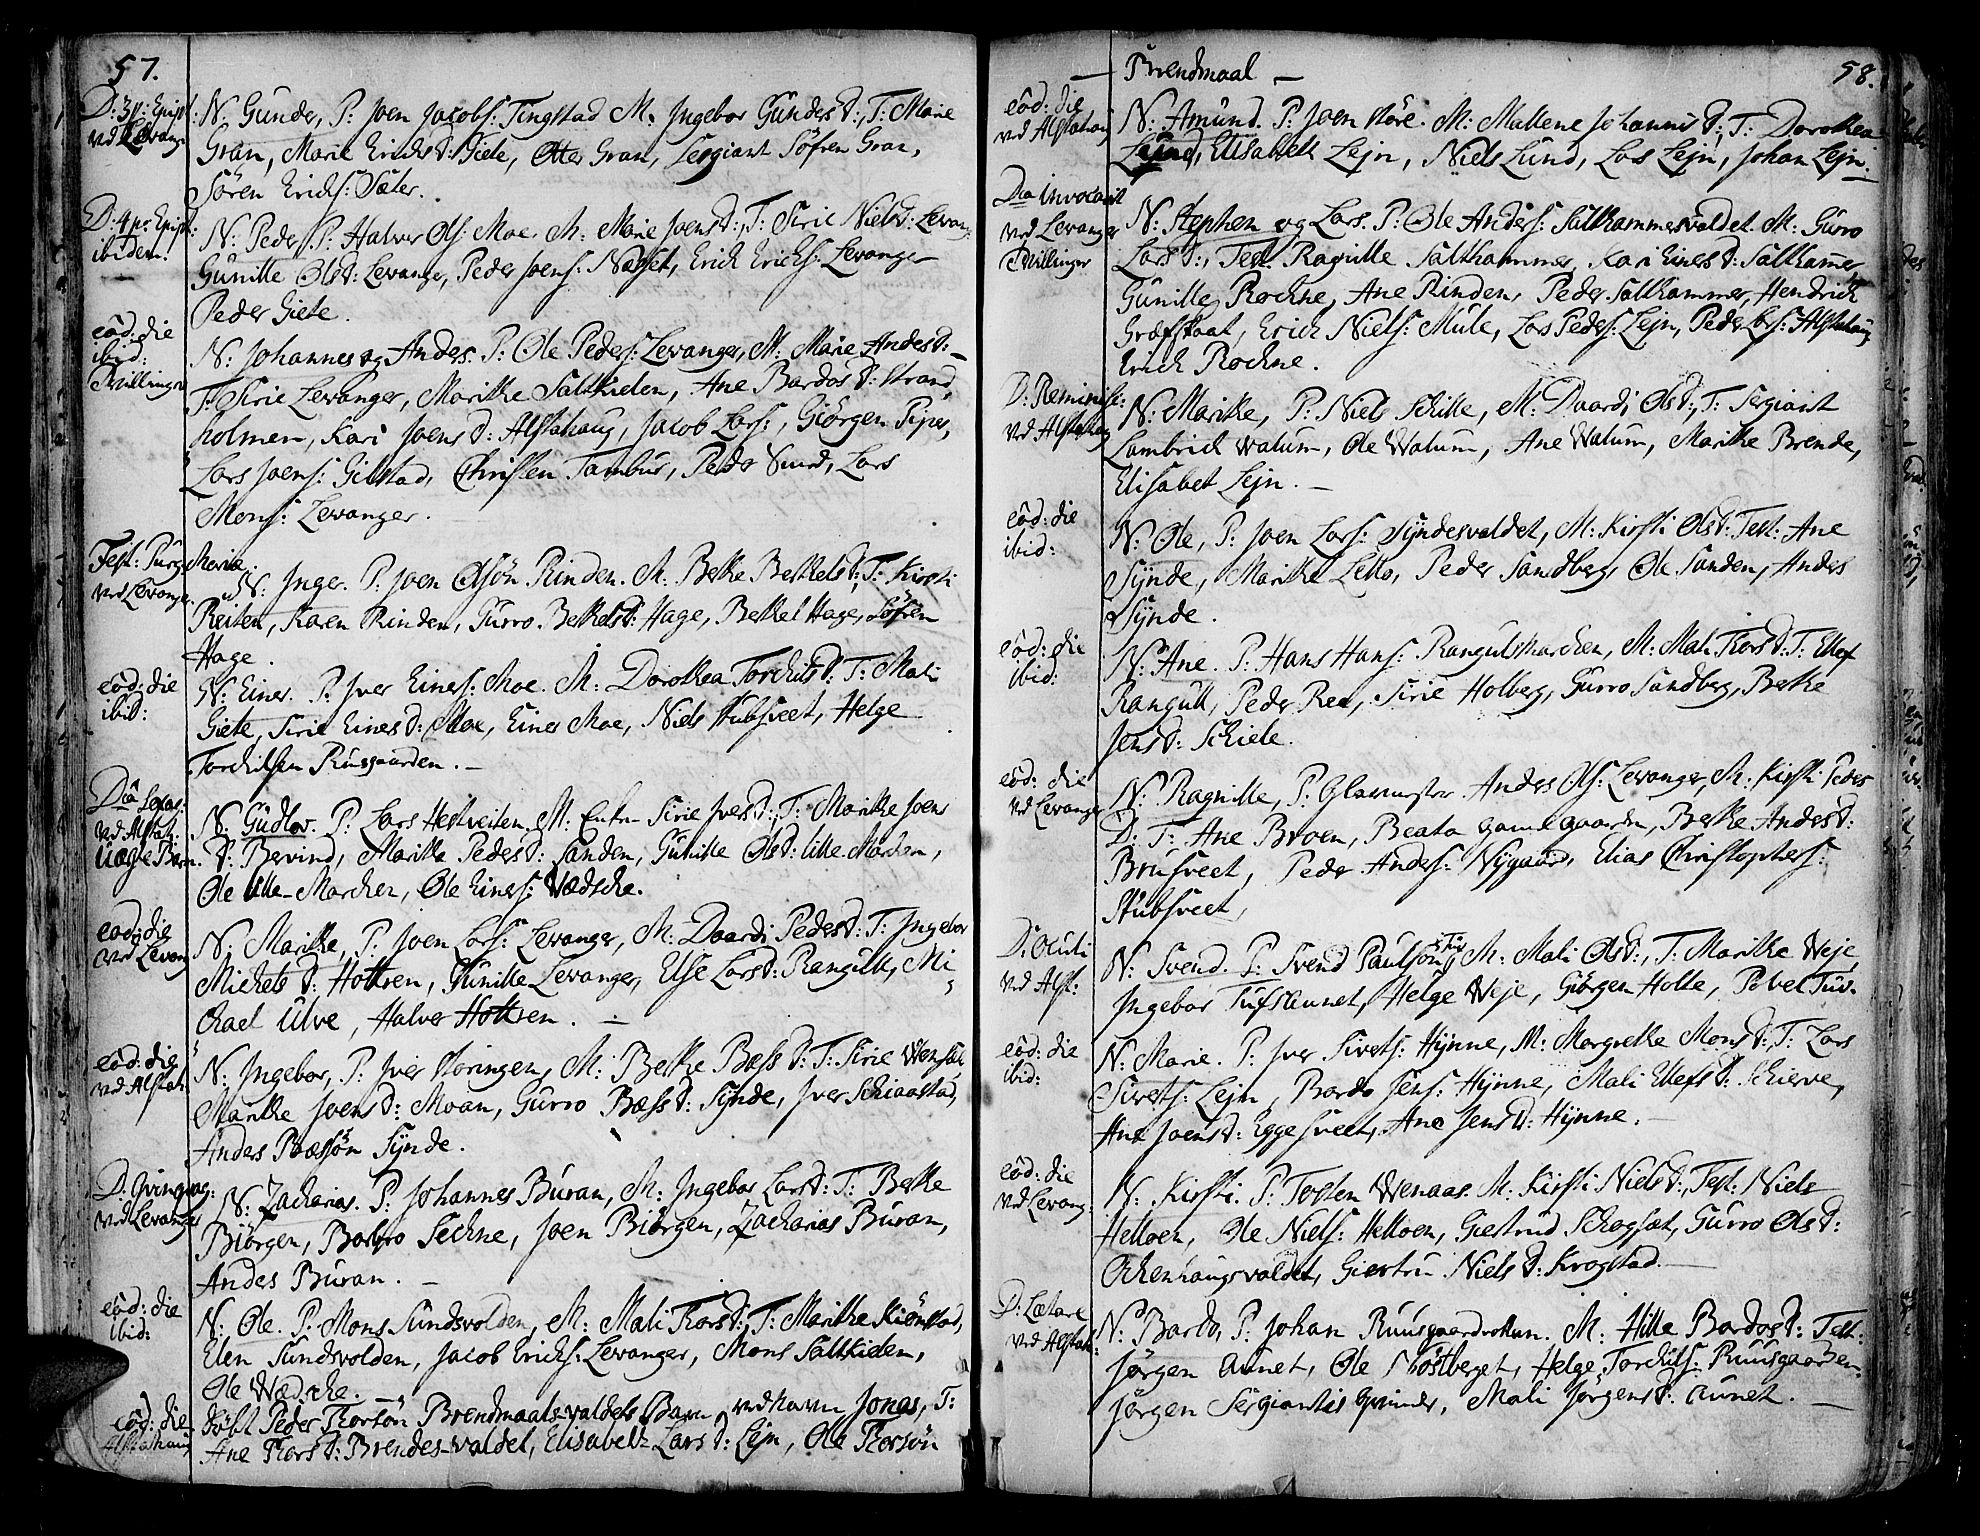 57.
D: 3 p: Epiph:
ved Levang:
N: Gunder, P: Joen Jacobs: Tingstad M. Ingebor Gunders D:, T: Marie
Gran, Marie Ericks D: Giete, Otter Gran, Sergiant Söfren Gran,
Sören Ericks: Sæter.
D: 4 p: Epiph:
ibidem.
N: Peder P: Halvor Ols: Moe. M: Marie Joens D:, T: Sirie Niels D: Levang:
Gunille Ols D: Levanger, Peder Joens: Næsset, Erick Ericks: Levanger
Peder Giete.
eod: die
ibid:
Tvillinger
N: Johannes og Anders. P: Ole Peders: Levanger, M: Marie Anders D: –
T: Sirie Levanger, Marithe Saltkielen, Ane Bardos D: Strand
holmen, Kari Joens D: Alstahaug, Jacob Lars:, Giörgen Piper,
Lars Joens: Gilstad, Christen Tambur, Peder Smed, Lars
Mons: Levanger.
Fest: Purg: Mariæ
ved Levanger.
N: Inger. P: Joen Olsön Rinden. M: Bethe Berthels D:, T: Kirsti
Reiten, Karen Rinden, Gurro Bertels D: Hage, Berthel Hage, Söfren
Hage.
eod: die
ibid:
N: Einer. P: Iver Einers: Moe. M: Dorothea Torchilds D: T: Mali
Giete, Sirie Einers D: Moe, Einer Moe, Niels Stubsveet, Helge
Torchilsen Ruusgaarden. –
Dca Sexag:
ved Alstah:
Uægte Barn.
N: Gudlov. P: Lars Hestveiten. M: Enke Sirie Ivers D:, T: Marithe Joens
D: Bervind, Marithe Peders D: Sanden, Gunille Ols D: lille Marchen,
Ole lille-Marchen, Ole Einers: Wædsche.
eod: die
ved Levang
N: Marithe, P: Joen Lars: Levanger, M: Daardi Peders D: T: Ingebor
Michels D: Hottren, Gunille Levanger, Else Lars D: Rangull, Mi-
chael Ulve, Halvor Hottren. –
eod: die
ved Alstah:
N: Ingebor, P: Iver Störingen, M: Bethe Bæss D: T: Sirie
Marithe Joens D: Moan, Gurro Bæss D: Synde, Iver Schiaastad,
Anders Bæssön Synde.
D: Qvinqvag:
ved Levanger
N: Zacharias. P: Johannes Buran, M: Ingebor Lars D: T: Bethe
Biörgen, Barbro Sechne, Joen Biörgen, Zacharias Buran,
Anders Buran. –
eod: die
ibid:
N: Ole. P: Mons Sundsvolden, M: Mali Thors D:, T: Marithe Kiönstad,
Elen Sundsvolden, Jacob Ericks: Levanger, Mons Saltkielen,
Ole Wædsche. –
eod: die
Alstahaug
döbt Peder Thorsön Brendmaals-valdets Barn ved navn Jonas, T:
Ane Thors D: Brendes-valdet, Elisabeth Lars D: Lejn, Ole Thorsön
58.
– Brendmaal –
eod: die
ved Alstahaug
N: Amund. P: Joen Störe. M: Mallene Johannis D:, T: Dorothea
Lejn, Elisabeth Lejn, Niels Lund, Lars Lejn, Johan Lejn.
Dca Invocavit
ved Levanger
Tvillinger
N: Stephen og Lars. P: Ole Anders: Salthammersvaldet. M: Gurro
Lars D:, Test: Ragnille Salthammer, Kari Einers D: Salthamer
Gunille Rochne, Ane Rinden, Peder Salthammer, Hendrich
Græfskaat, Erich Niels: Mule, Lars Peders: Lejn, Peder Lars: Alstahaug
Erich Rochne.
D: Reminisc:
ved Alstahaug
N: Marithe, P: Niels Schille, M: Daardi Ols D:, T: Sergiant
Lambrich Walum, Ole Walum, Ane Walum, Marithe Brende,
Elisabet Lejn. –
eod: die
ibid:
N: Ole, P: Joen Lars: Syndesvaldet, M: Kirsti Ols D: Test: Ane
Synde, Marithe Lello, Peder Sandberg, Ole Sanden, Anders
Synde.
eod: die
ibid:
N: Ane. P: Hans Hans: Rangulsmarchen, M: Mali Thors D: T: Ellef
Rangull, Peder Ree, Sirie Holberg, Gurro Sandberg, Bethe
Jens D: Schiele.
eod: die
ved Levanger
N: Ragnille, P: Glarmester Anders Ols: Levanger, M: Kirsti Peders
D: T: Ane Broen, Beata Gamelgaarden, Bethe Anders D:
Brusveet, Peder Anders: Nygaard, Elias Christophers:
Stubsveet,
D: Oculi
ved Alst:
N: Svend. P: Svend Paulsön, M: Mali Ols D:, T: Marithe Weje,
Ingebor Tufsaunet, Helge Weje, Giörgen Holte, Povel Tuv.
eod: die
ibid:
N: Marie. P: Iver Siverts: Hynne, M: Margrethe Mons D: T: Lars
Siverts: Lejn, Bardo Jens: Hynne, Mali Ellefs D: Schierve,
Ane Joens D: Eggesveet, Ane Jens D: Hynne. –
eod: die
ved Levang:
N: Kirsti. P: Torsten Wenaas. M: Kirsti Niels D:, Test: Niels
Helloen, Ole Niels: Helloen, Giertrud Schogsæt, Gurro Ols D:
Ochenhaugsvaldet, Giertru Niels D: Krogstad. –
D: Lætare
ved Alstah:
N: Bardo, P: Johan Ruusgaardvollen. M: Hille Bardos D: Test:
Jörgen Aunet, Ole Röstberget, Helge Torchils: Ruusgaarden
Jörgen Sergiantis Grinder, Mali Jörgens D: Aunet. –